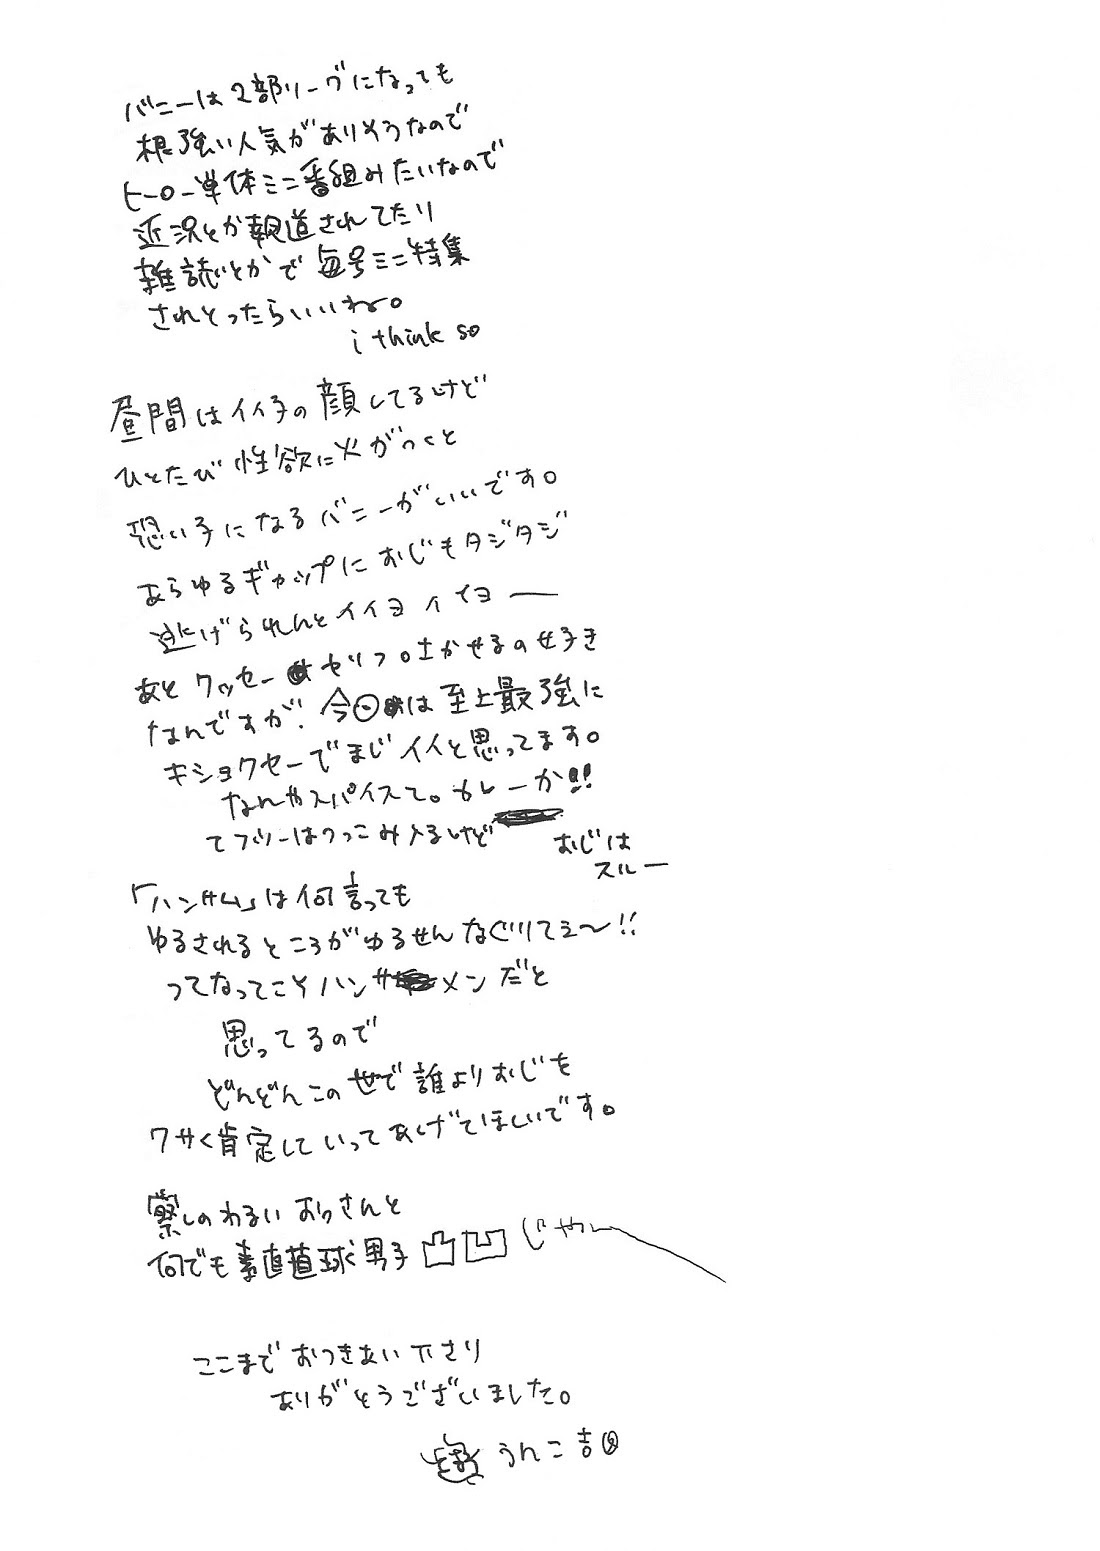 バニーは2部リーグになっても
根強い人気がありそうなので
ヒーロー単体ミニ番組みたいなので
近況とか報道されてたり
雑誌とかで毎号ミニ特集
されとったらいいね。
i think so
昼間はイイ子の顔してるけど
ひとたび性欲に火がつくと
恐い子になるバニーがいいです。
あらゆるギャップにおじもタジタジ
逃げられんとイイヨイイヨー
あとクッセーセリフ吐かせるの好き
なんですが、今回は至上最強に
キショクセーでまじイイと思ってます。
なんやスパイスて。カレーか!!
てブリーはつっこみ入るけど
おじは
スルー
「ハンサム」は何言っても
ゆるされるところがゆるせんなぐりてぇ〜!!
ってなってこそハンサメンだと
思ってるので
どんどんこの世で誰よりおじを
クサく肯定していってあげてほしいです。
察しのわるいおっさんと
何でも素直直球男子凸凹じゃー
ここまでおつきあい下さり
ありがとうございました。
うんこ吉